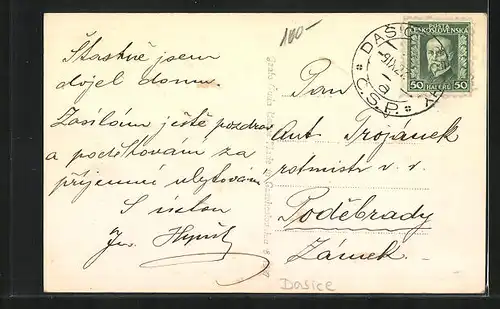 100-
Šťastně jsem
dojel domu.
Zasílám ještě pozdrav
a poděkování za
příjemné ubytování
S úctou
Pan
Ant. Trojánek
rotmistr v. v.
Poděbrady
Zámek.
DAŠICE
ČSP
POŠTA
ČESKOSLOVENSKÁ
50 HALÉŘŮ 50
Dasice